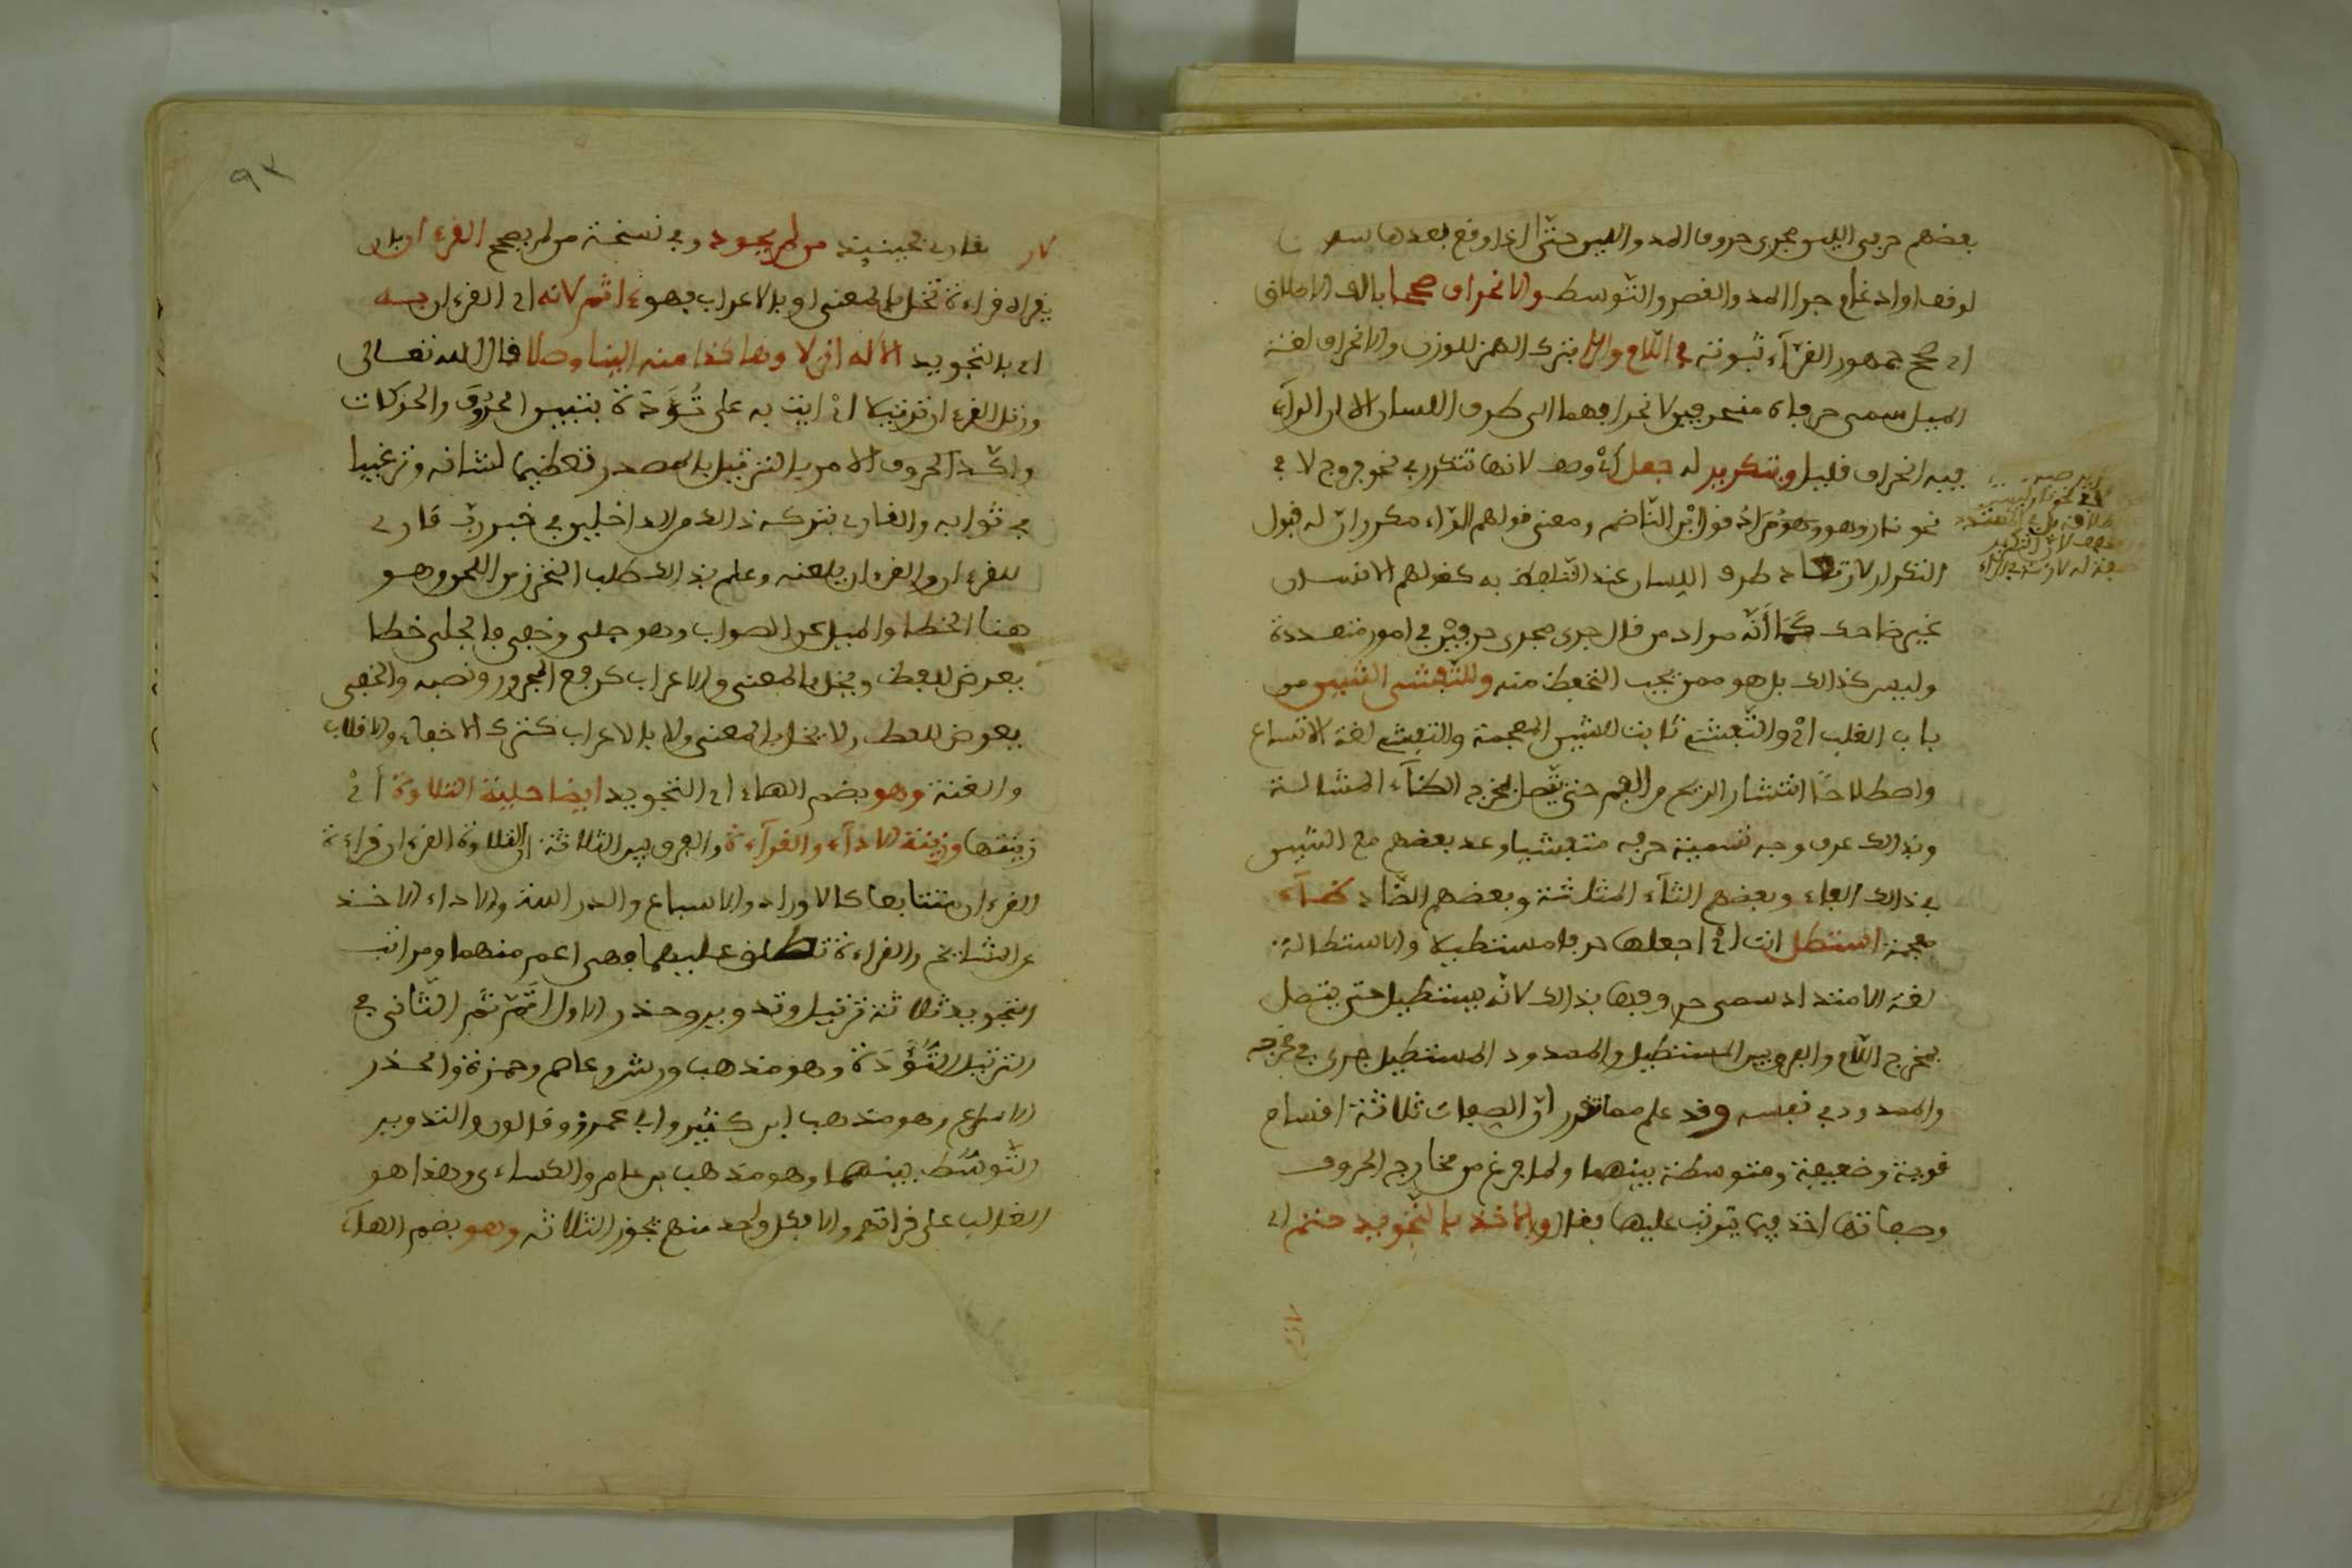 بعضهم حرفي اللين مجرى حروف المد واللين حتى اذا وقع بعدها
لوقف او ادغام جرا المد والقصر والتوسط والانحراف صححا بالف الاطلاق
اى صحح جمهور القرآء ثبوته في اللام والرا بترك الهمز للوزن والانحراف لغة
الميل سمى حرفاه منحرفين لانحرافهما الى طرف اللسان الا ان الرآء
فيه انحراف قليل وبتكرير له جعل اىْ وصف لانها تتكرر في نحو فروح لا في
نحو نار وهو مراد قول الناظم ومعنى قولهم الرآء مكرر انّ له قبول
التكرار لارتعاد طرف اللسان عند التلفظ به كقولهم الانسان
غير ضاحك كما أنّه مراد من قال جرى مجرى حرفين في امور متعددة
وليس كذالك بل هو ممن يجب التحفظ منه وللتّفشى الشين من
باب القلب اىْ والتّفشى ثابت للشين المعجمة والتفشى لغة الاتساع
واصطلاحًا انتشار الريح من الفم حتى يتّصل بمخرج الظآء المشالة
وبذالك عرف وجه تسمية حرفه متفشيا وعد بعضهم مع الشين
في ذالك الفاء وبعضهم الثآء المثلثة وبعضهم الضاد ضآء
معجمة استطل انت اىْ اجعلها حرفا مستطيلا والاستطالة
لغة الامتداد سمى حروفها بذالك لانّه يستطيل حتى يتصل
بمخرج اللّام والفرق بين المستطيل والممدود المستطيل جرى في مخرجه
والممدود في نفسه وقد علم مما تقرر انّ الصفات ثلاثة اقسام
قوية وضعيفة ومتوسطة بينهما ولما فرغ من مخارج الحروف
وصفاتها اخذ فيما يترتب عليها فقال والاخذ بالتّجويد حتم اى
لازم
٩٣
لازم بقارئ فحينئذ من لم يجود وفي نسخة من لم يصحح القرءان بان
يقراه قراءة تخل بالمعنى او بالاعراب فهو ءاثم لانه اى القرءان به
اى بالتجويد الاله انزلا وهاكذا منه الينا وصلا قال الله تعالى
ورتل القرءان ترتيلا اىْ ايت به على تُؤَدَة بتبيين الحروف والحركات
واكّد الامر بالترتيل بالمصدر تعظيما لشانه وترغيبا
في ثوابه والقارئ بتركه ذالك من الداخلين في خبر ربّ قارئ
للقرءان والقرءان يلعنه وعلم بذالك طلب التحرز من اللحن وهو
هنا الخطا والميل عن الصواب وهو جلى وخفى فالجلى خطا
يعرض للفظ ويخل بالمعنى والاعراب كرفع المجرور ونصبه والخفى
يعرض للفظ ولا يخل بالمعنى ولا بالاعراب كترك الاخفاء والاقلاب
والغنة وهو بضم الهاء اى التجويد ايضا حلية التلاوة اىْ
زينتها وزينة الادآء والقرآءة والفرق بين الثلاثة ان التلاوة القرءان قراءة
القرءان متتابعا كالاوراد والاسباع والدراسة والاداء الاخذ
عن المشايخ والقراءة تطلق عليهما فهى اعم منهما ومراتب
التجويد ثلاثة ترتيل وتدوير وحذر والاول اتمّ ثم الثّانى
الترتيل التُّؤَدَة وهو مذهب ورش وعاصم وحمزة والحذر
الاسراع وهو مذهب ابن كثير وابى عمرو وقالون والتدوير
التّوسّط بينهما وهو مذهب بن عامر والكساءى وهذا هو
الغالب على قراتهم والا فكل واحد منهم يجوز الثلاثة وهو بضم الهآء